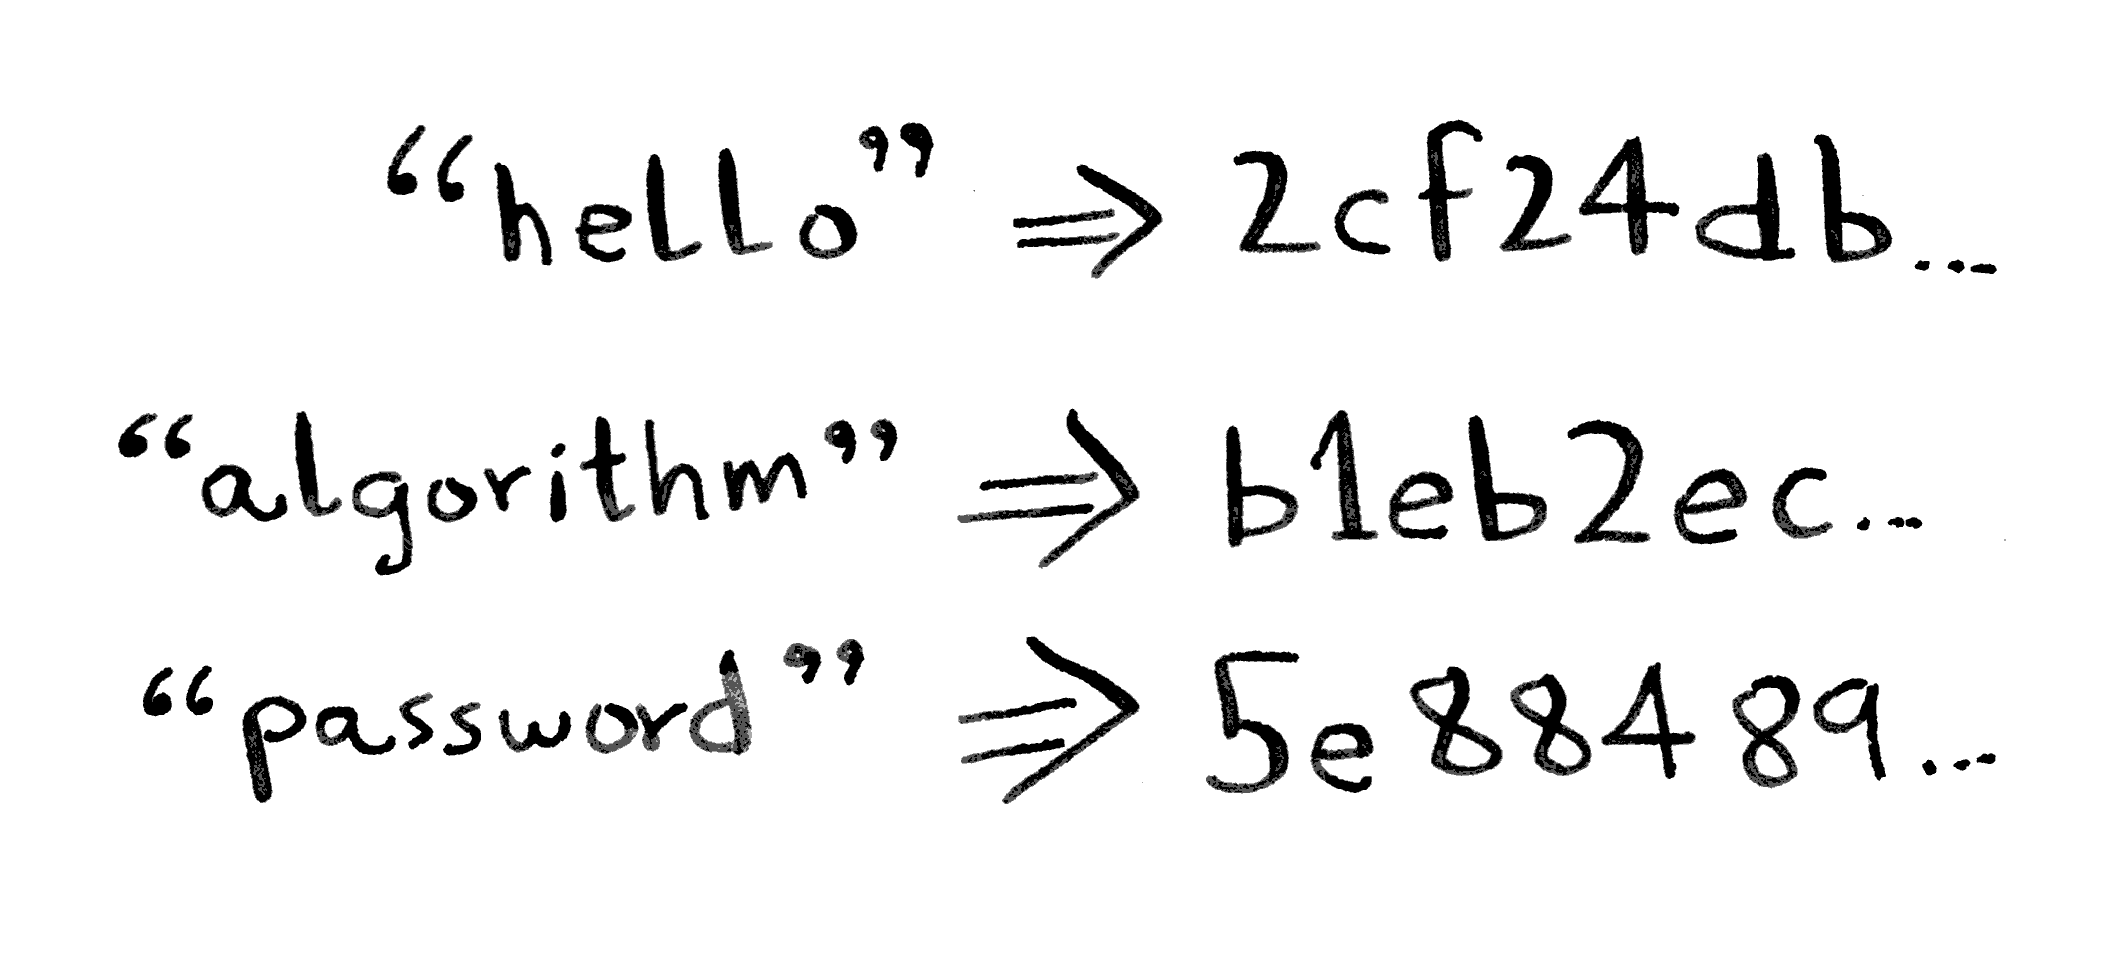 “hello” ⇒ 2cf24db...
“algorithm” ⇒ b1eb2ec...
“password” ⇒ 5e88489...